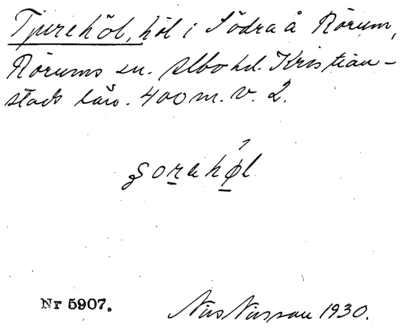 Tjurehöl, höl i Södra å Rörum,
Rörums sn. Albo hd. Kristian-
stads län. 400 m. v. 2.
Nr 5907.
Nils Nilsson 1930.